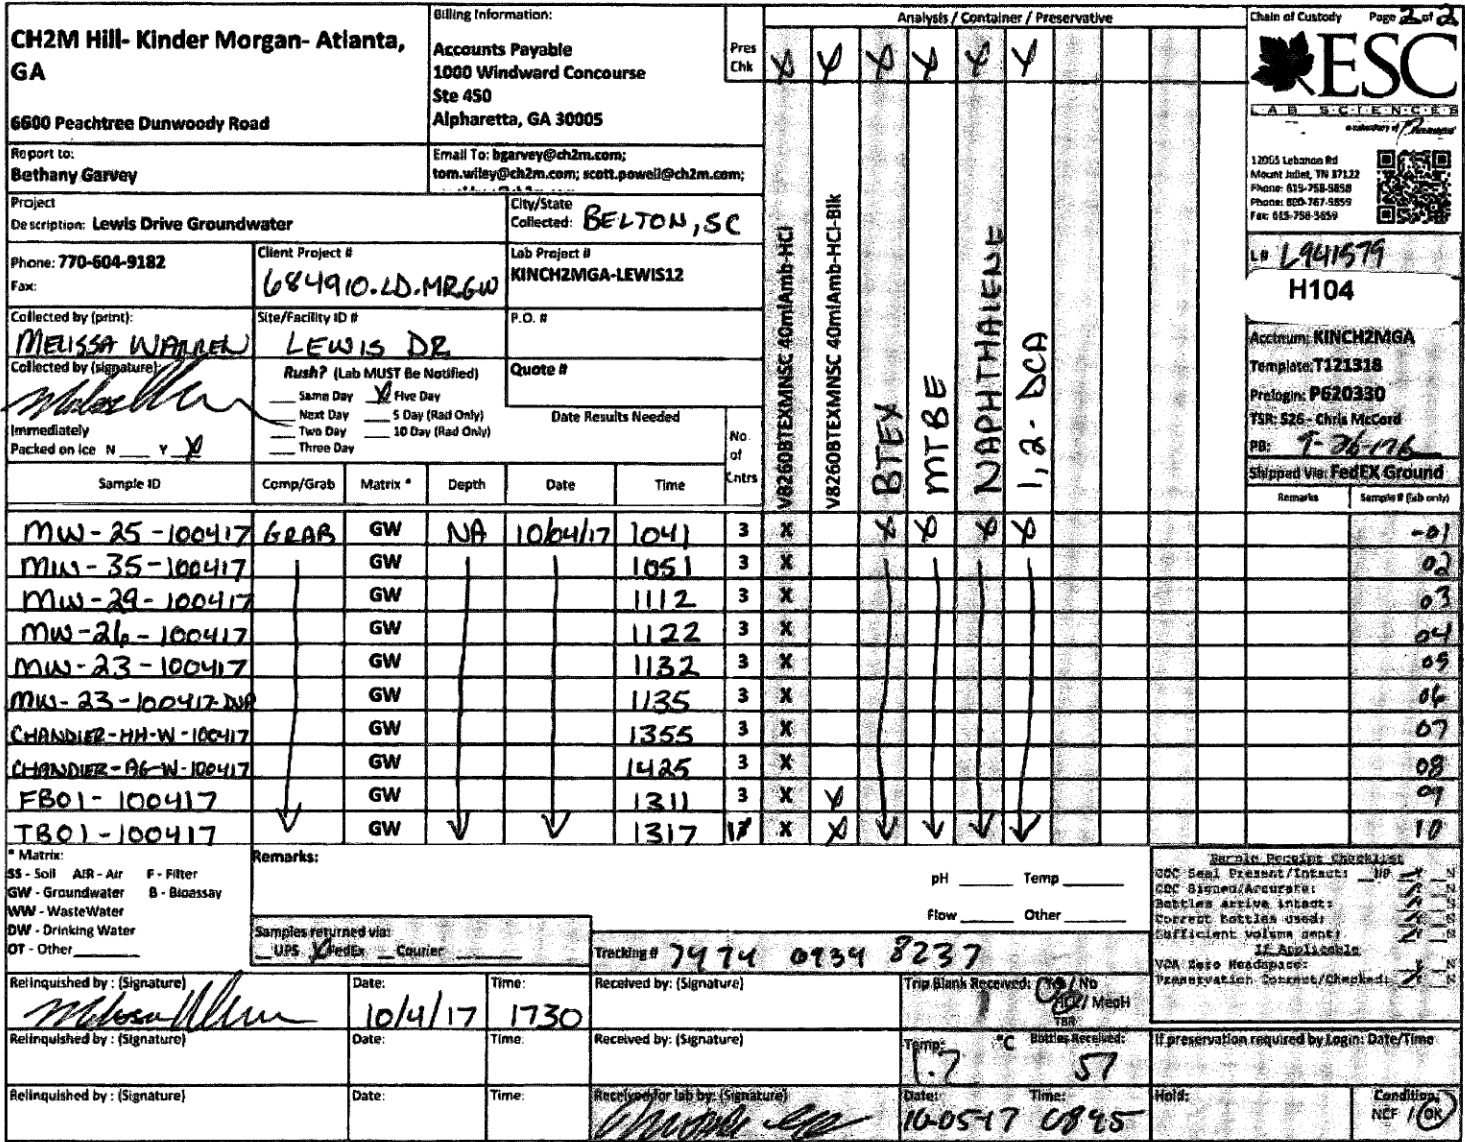 CH2M Hill- Kinder Morgan- Atlanta, GA
6600 Peachtree Dunwoody Road
Billing Information:
Accounts Payable
1000 Windward Concourse
Ste 450
Alpharetta, GA 30005
Pres Chk
Analysis / Container / Preservative
Chain of Custody Page 2 of 2
ESC
L·A·B S·C·I·E·N·C·E·S
a subsidiary of
12065 Lebanon Rd
Mount Juliet, TN 37122
Phone: 615-758-5858
Phone: 800-767-5859
Fax: 615-758-5859
Report to:
Bethany Garvey
Email To: bgarvey@ch2m.com;
tom.wiley@ch2m.com; scott.powell@ch2m.com;
Project
Description: Lewis Drive Groundwater
City/State
Collected: BELTON, SC
Phone: 770-604-9182
Fax:
Client Project #
684910.LD.MR.GW
Lab Project #
KINCH2MGA-LEWIS12
Collected by (print):
MELISSA WARREN
Site/Facility ID #
LEWIS DR
P.O. #
Collected by (signature):
Rush? (Lab MUST Be Notified)
___ Same Day X Five Day
___ Next Day ___ 5 Day (Rad Only)
___ Two Day ___ 10 Day (Rad Only)
___ Three Day
Quote #
Date Results Needed
Immediately
Packed on Ice N ___ Y X
No. of Cntrs
V8260BTEXMNSC 40mlAmb-HCl
V8260BTEXMNSC 40mlAmb-HCl-Blk
BTEX
MTBE
NAPHTHALENE
1,2-DCA
L# L941579
H104
Acctnum: KINCH2MGA
Template: T121318
Prelogin: P620330
TSR: 526 - Chris McCord
PB:
Shipped Via: FedEX Ground
Remarks Sample # (lab only)
Sample ID Comp/Grab Matrix * Depth Date Time
MW-25-100417 GRAB GW NA 10/04/17 1041 3 X X X X X -01
MW-35-100417 GW 1051 3 X 02
MW-29-100417 GW 1112 3 X 03
MW-26-100417 GW 1122 3 X 04
MW-23-100417 GW 1132 3 X 05
MW-23-100417-DUP GW 1135 3 X 06
CHANDLER-HH-W-100417 GW 1355 3 X 07
CHANDLER-AG-W-100417 GW 1425 3 X 08
FB01-100417 GW 1311 3 X X 09
TB01-100417 GW 1317 X X 10
* Matrix:
SS - Soil AIR - Air F - Filter
GW - Groundwater B - Bioassay
WW - WasteWater
DW - Drinking Water
OT - Other
Remarks:
pH ___ Temp ___
Flow ___ Other ___
Samples returned via:
___ UPS X FedEx ___ Courier
Tracking # 7474 0939 8237
Sample Receipt Checklist
COC Seal Present/Intact: NP Y N
COC Signed/Accurate: N
Bottles arrive intact: N
Correct bottles used: N
Sufficient volume sent: N
If Applicable
VOA Zero Headspace: N
Preservation Correct/Checked: N
Relinquished by : (Signature)
Date: 10/4/17
Time: 1730
Received by: (Signature)
Trip Blank Received: Yes / No
1 HCL / MeoH
TBR
Relinquished by : (Signature)
Date:
Time:
Received by: (Signature)
Temp: 1.7 °C
Bottles Received: 57
If preservation required by Login: Date/Time
Relinquished by : (Signature)
Date:
Time:
Received for lab by: (Signature)
Date: 10-05-17
Time: 0845
Hold:
Condition:
NCF / OK